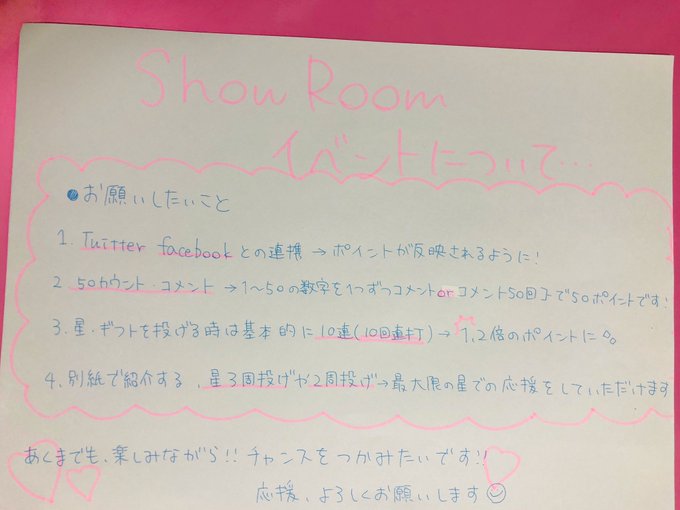 Show Room
イベントについて…
●お願いしたいこと
1. Twitter facebookとの連携 → ポイントが反映されるように!
2. 50カウント・コメント → 1〜50の数字を1つずつコメントorコメント50回〆で50ポイントです!
3. 星・ギフトを投げる時は基本的に10連(10回連打) → 1.2倍のポイントに
4. 別紙で紹介する、星3周投げや2周投げ→最大限の星での応援をしていただけます
あくまでも、楽しみながら!! チャンスをつかみたいです!!
応援、よろしくお願いします☺